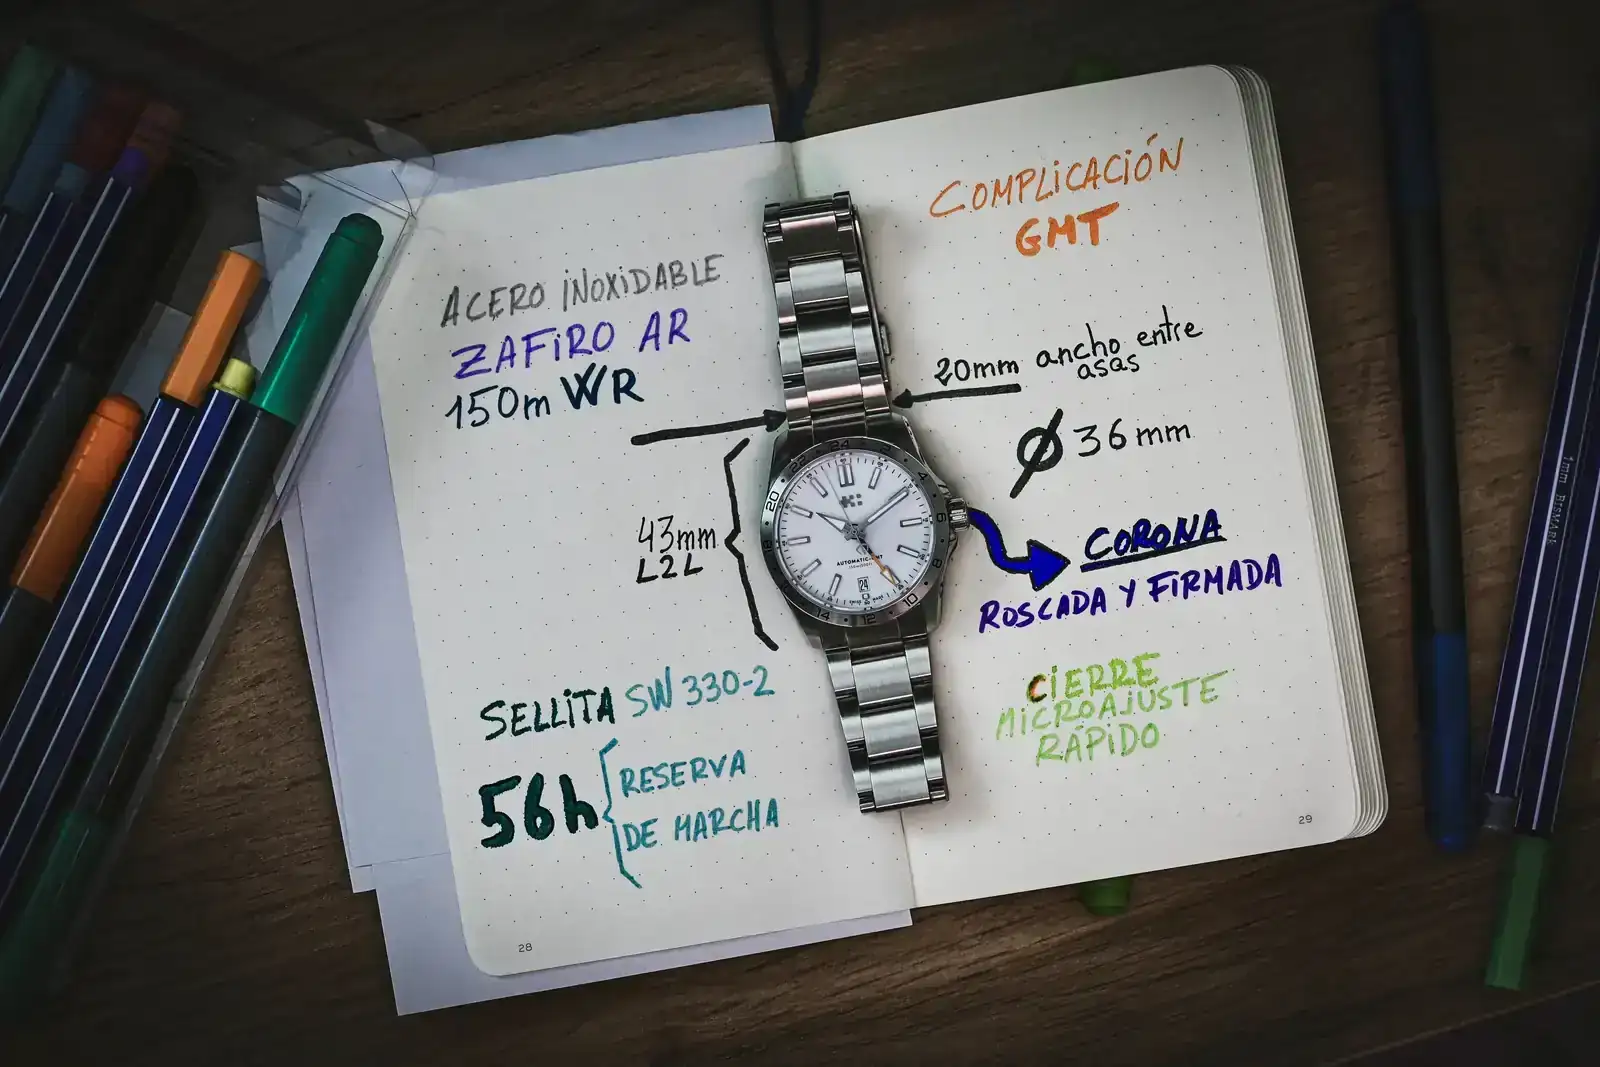 ACERO iNOXiDABLE
ZAFiRO AR
150m WR
43mm
L2L
SELLiTA SW 330-2
56h
RESERVA
DE MARCHA
28
COMPLiCACiÓN
GMT
20mm ancho entre
asas
Ø 36mm
CORONA
ROSCADA Y FiRMADA
CiERRE
MiCROAJUSTE
RÁPiDO
29
24
20
14
12
10
8
6
4
AUTOMATIC GMT
24
1mm BISMARK